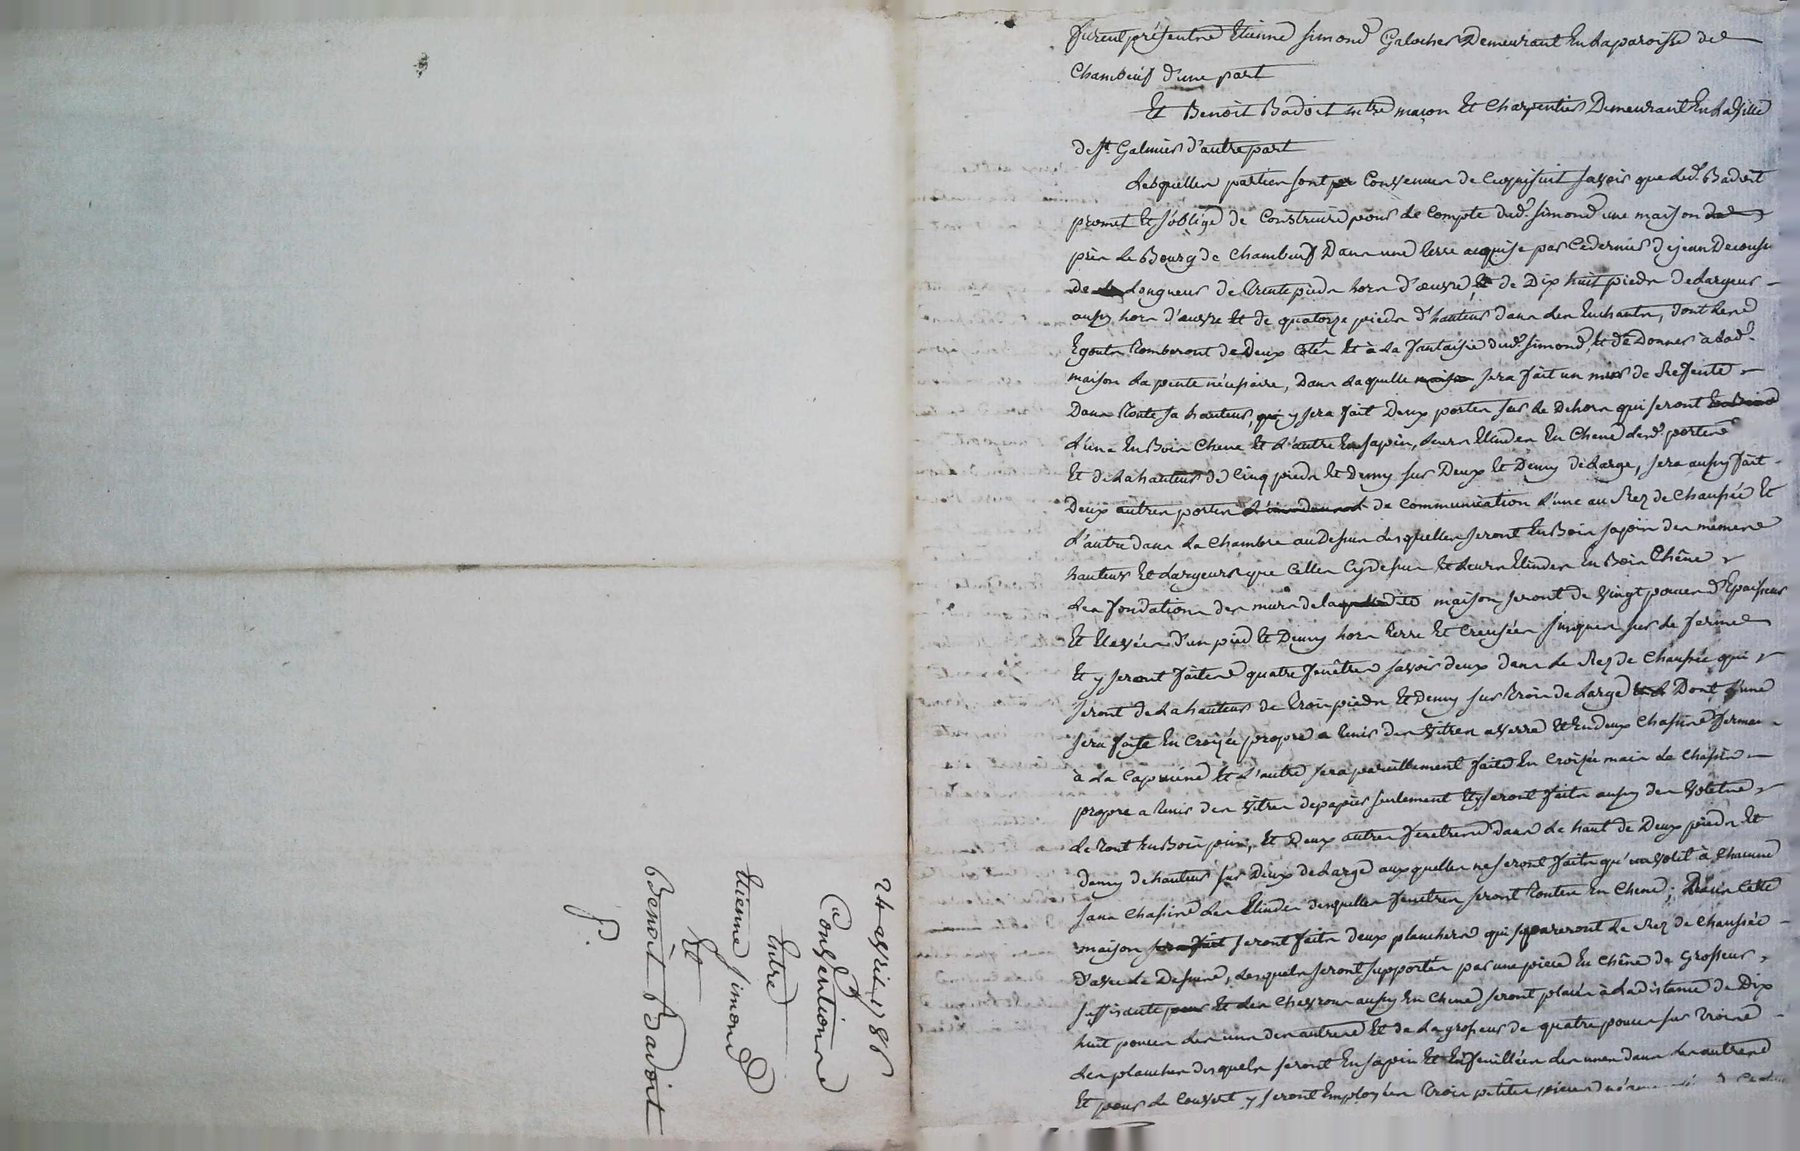 24 avril 1786
Conventions
Entre
Etienne simond
Et
Benoit Badoit
P.
furent présents Etienne simond Galocher Demeurant En la paroisse de
Chambeuf d'une part
Et Benoit Badoit mtre maçon Et Charpentier Demeurant En la Ville
de st Galmier d'autre part
Lesquelles parties sont convenues de Cequisuit savoir que led. Badoit
promet Et s'oblige de Construire pour le Compte dud. simond une maison
près le Bourg de Chambeuf Dans une terre acquise par Cedernier de jean
de longueur de trente pieds hors d'œuvre, Et de Dix huit pieds de largeur
aussy hors d'œuvre Et de quatorze pieds d'hauteur dans les Enchants, dont les
Egouts tomberont de Deux Côtés Et à la fantaisie dud. simond, Et de Donner à lad.
maison la pente nécessaire, Dans laquelle sera fait un mur de Reffente
Dans toute sa hauteur, y sera fait Deux portes sur le Dehors qui seront
l'une En Bois Chene Et l'autre En sapin, leurs Elindes En Chene desd. portes
Et de la hauteur de Cinq pieds Et Demy sur Deux Et Demy de large, sera aussy fait
Deux autres portes de Communication l'une au Rez de Chaussée Et
l'autre dans la Chambre au Dessus lesquelles seront En Bois sapin des mêmes
hauteur Et largeur que Celles Cydessus Et leurs Elindes En Bois Chêne
Les fondations des murs de la dite maison seront de Vingt pouces d'Epaisseur
Et Elevées d'un pied Et Demy hors terre Et Creusées jusques sur le ferme
Et y seront faites quatre fenêtres savoir deux dans le Rez de Chaussée qui
seront de la hauteur de trois pieds Et Demy sur trois de large Dont l'une
sera faite En Croizée propre a tenir des Vitres a Verre Et En deux Chassis
à la Capucine Et l'autre sera pareillement faite En Croizée mais le Chassis
propre a tenir des Vitres depapier seulement Et y seront faits aussy des Volets
le tout En Bois pin, Et Deux autres fenetres dans le haut de Deux pieds Et
demy de hauteur sur Deux de large auxquelles ne seront faits qu'un Volet à Chacune
sans Chassis Les Elindes desquelles fenetres seront toutes En Chene; Dans Cette
maison seront faits deux planchers qui separeront le Rez de Chaussée
d'avec le Dessus, Lesquels seront supportés par une piece En Chêne de Grosseur
suffisante Et Les Chevrons aussy En Chene seront placés à la distance de Dix
huit pouces les uns des autres Et de la grosseur de quatre pouces sur trois
Les planches desquels seront En sapin Et Enfeuillées les unes dans les autres
Et pour le Couvert y seront Employées trois petites pieces